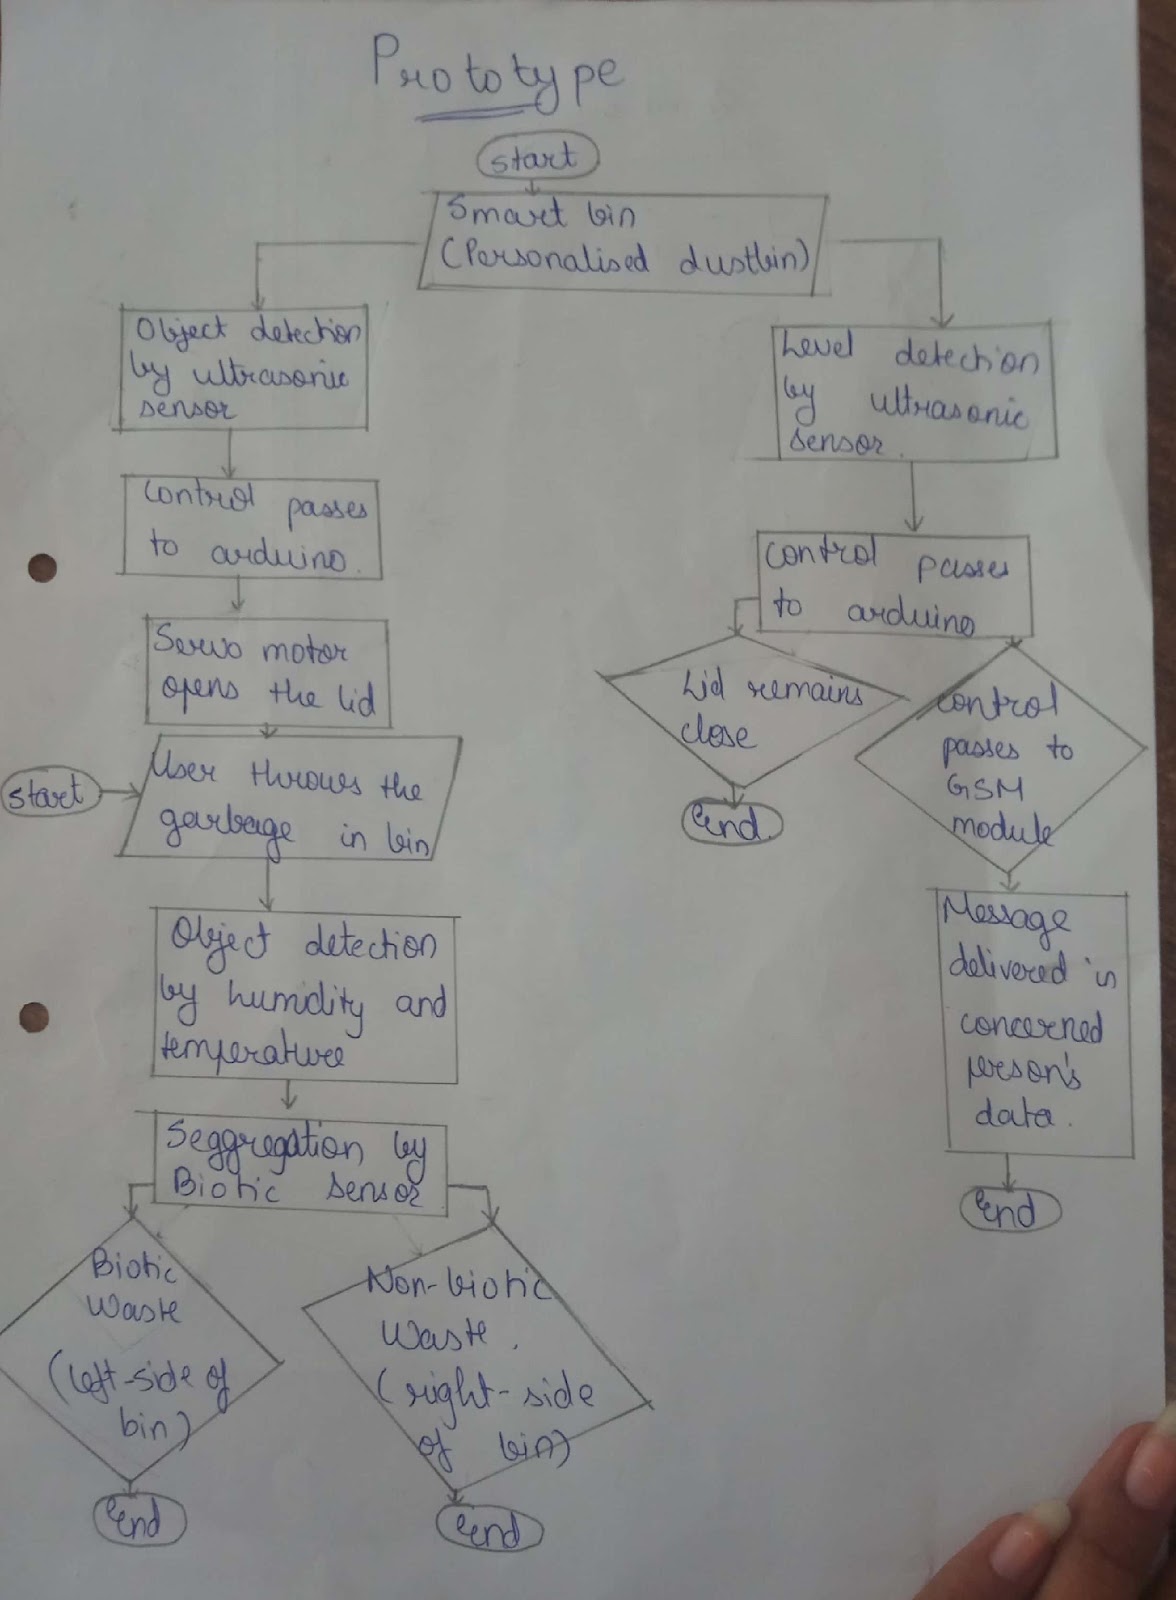 Prototype
start
Smart bin
(Personalised dustbin)
Object detection
by ultrasonic
sensor
Control passes
to arduino.
Servo motor
opens the lid
start
User throws the
garbage in bin
Object detection
by humidity and
temperature
Seggregation by
Biotic sensor
Biotic
Waste
(left-side of
bin)
End
Non-biotic
Waste.
(right-side
of bin)
End
Level detection
by ultrasonic
sensor.
control passes
to arduino
Lid remains
close
End.
control
passes to
GSM
module
Message
delivered in
concerned
person's
data.
End